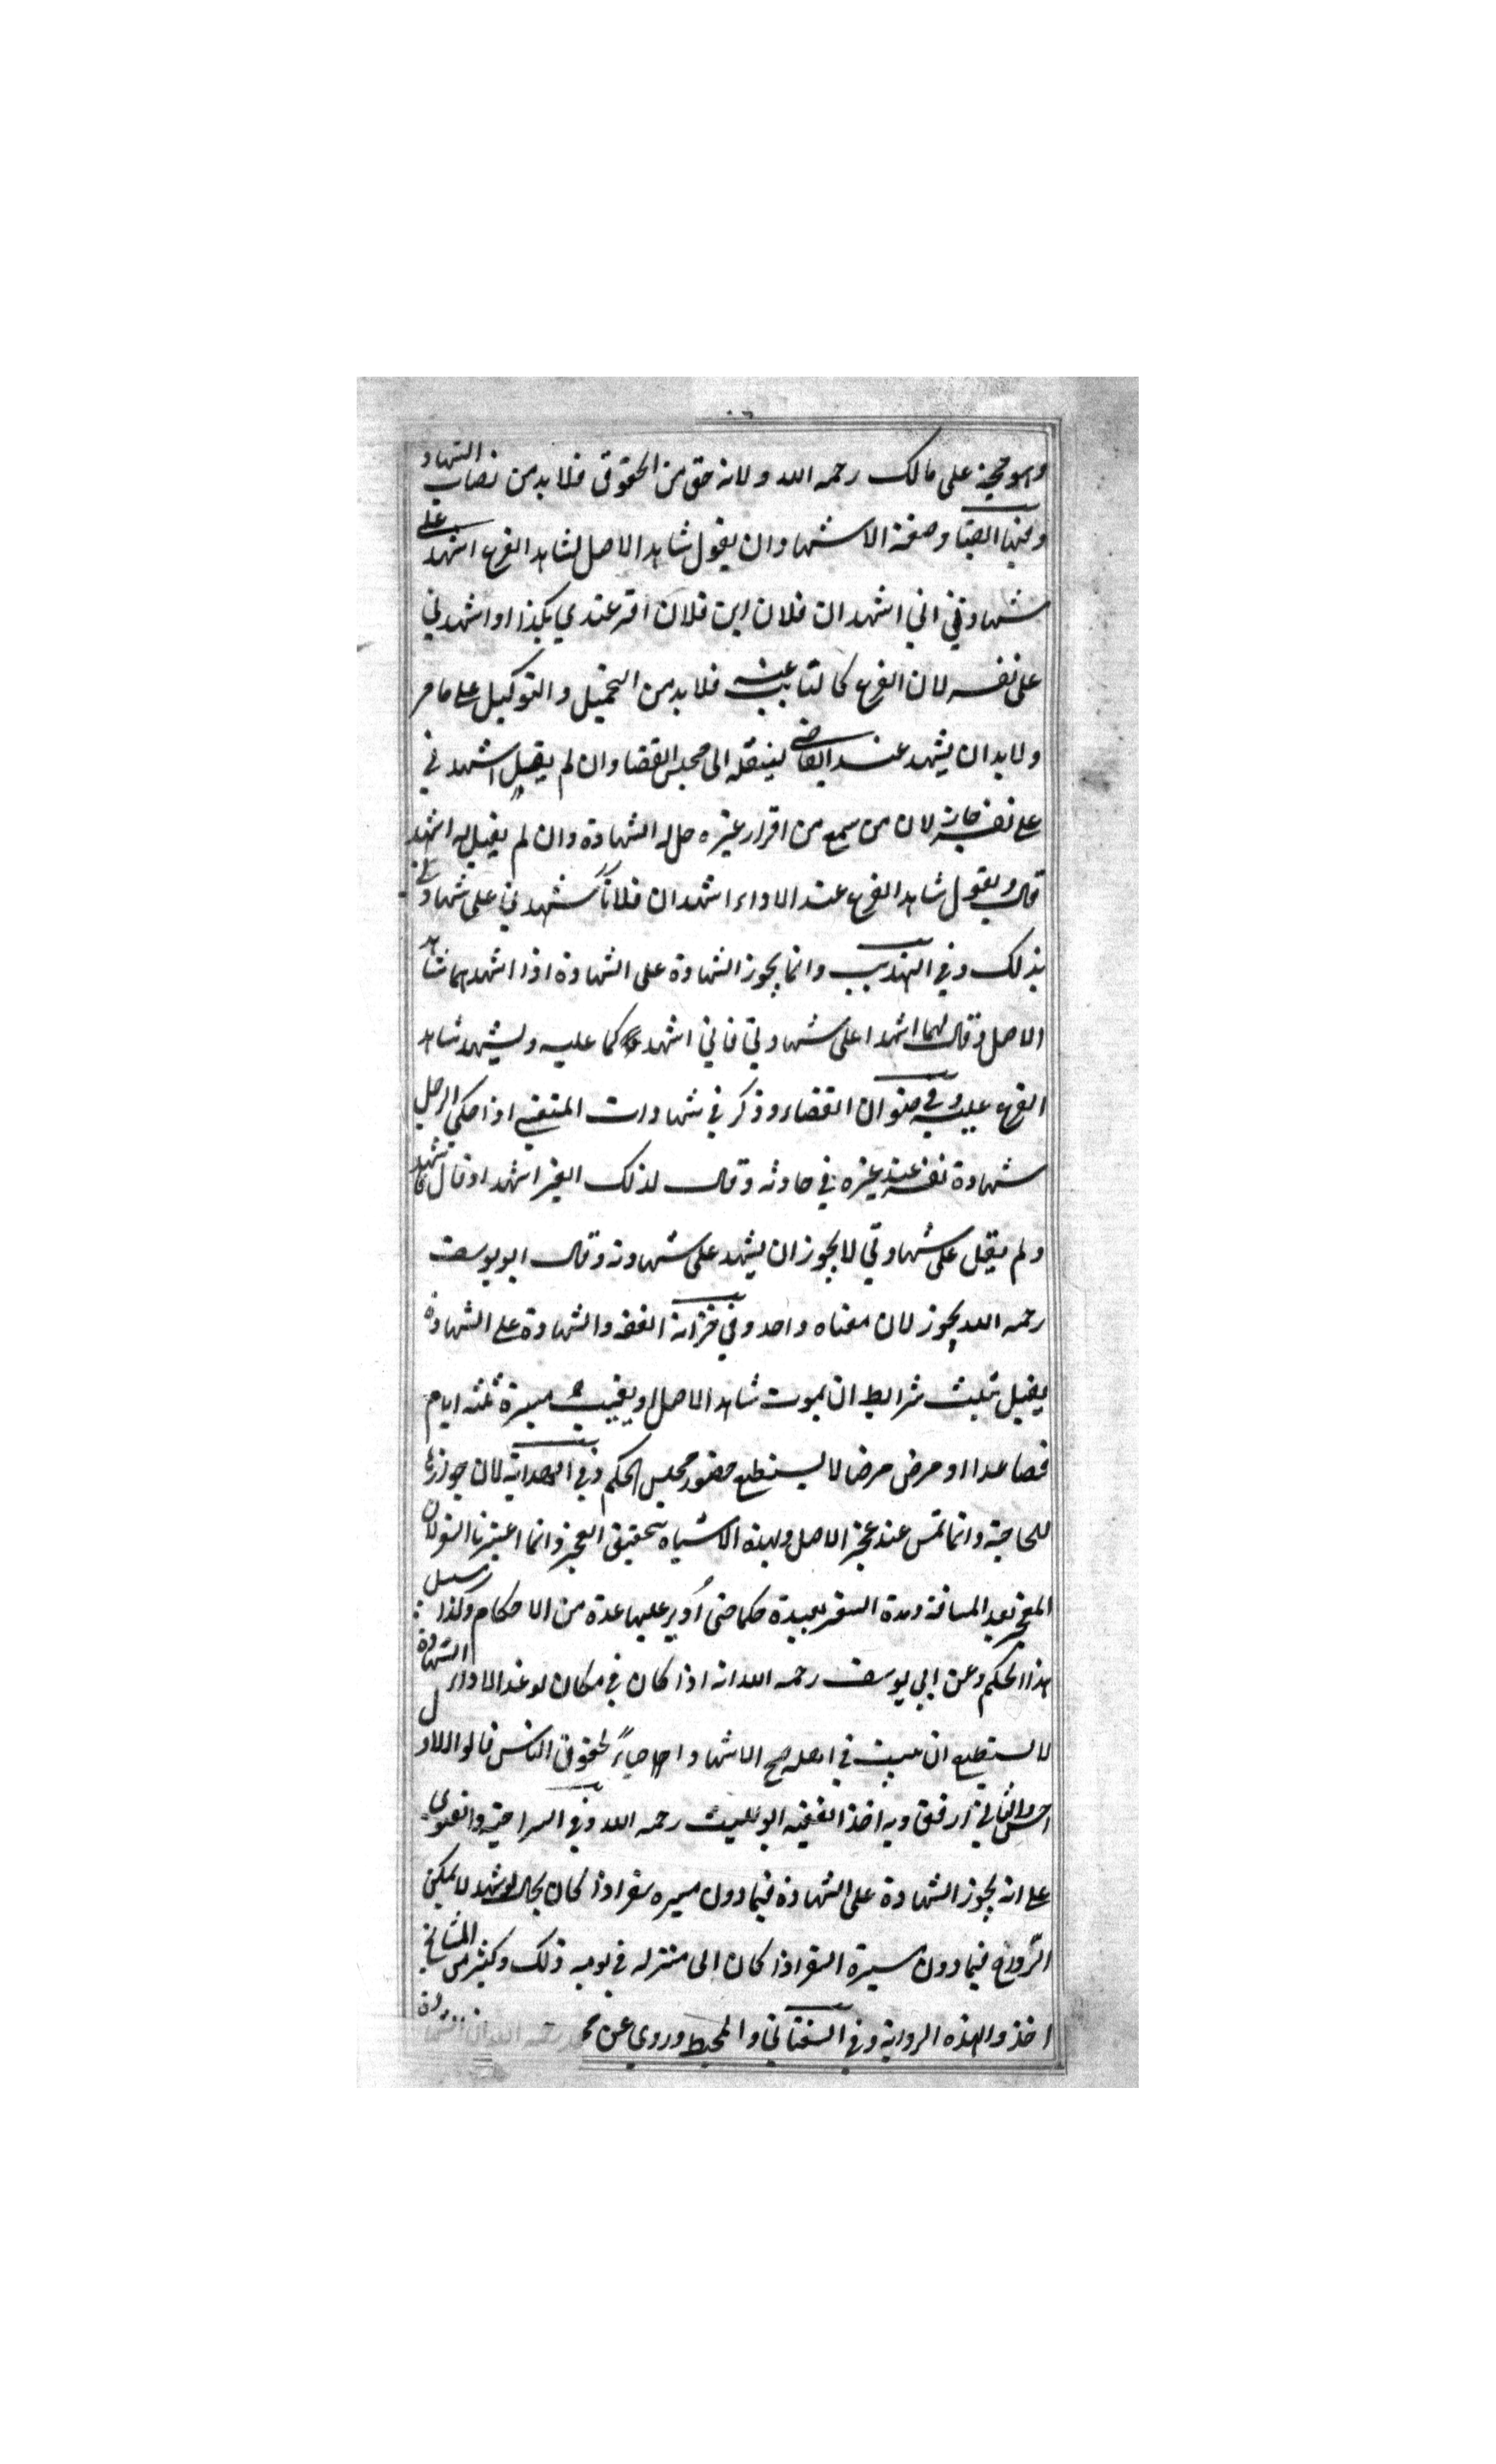 وهو حجة على مالك رحمه الله ولانه حق من الحقوق فلا بد من نصاب الشهاد
ومنها ايضا وصفة الاشهاد ان يقول شاهد الاصل لشاهد الفرع اشهد على
شهادتي اني اشهد ان فلان ابن فلان اقر عندي بكذا او اشهدني
على نفسه لان الفرع كالنايب عنه فلا بد من التحميل والتوكيل على ما مر
ولا بد ان يشهد عند القاضي لينقله الى مجلس القضا وان لم يقل اشهدني
على نفسه جاز لان من سمع من اقرار غيره حل له الشهادة وان لم يقل له اشهد
قال ويقول شاهد الفرع عند الاداء اشهد ان فلانا اشهدني على شهادته
بذلك وفي التهذيب وانما يجوز الشهادة على الشهادة اذا اشهدهما شاهد
الاصل وقال لهما اشهدا على شهادتي فاني اشهدكما عليه وليشهد شاهد
الفرع عليه وفي صنوان القضاء وذكر في شهادات المنتقى اذا حكى الرجل
شهادة نفسه عند غيره في حادثه وقال لذلك الغير اشهد او قال فاشهد
ولم يقل على شهادتي لا يجوز ان يشهد على شهادته وقال ابو يوسف
رحمه الله يجوز لان معناه واحد وفي خزانة الفقه والشهادة على الشهادة
يقبل بثلث شرايط ان يموت شاهد الاصل او يغيب مسيرة ثلثه ايام
فصاعدا او مرض مرضا لا يستطيع حضور مجلس الحكم وفي الهداية لان جوازها
للحاجة وانما تمس عند عجز الاصل وبهذه الاشياء يتحقق العجز وانما اعتبرنا السفر لان
المعجز بعد المسافة ومدة السفر بعيدة حكما حتى أدير عليها عدة من الاحكام وكذا سبيل
هذا الحكم وعن ابي يوسف رحمه الله انه اذا كان في مكان لو غدا لاداء الشهادة
لا يستطيع ان يبيت في اهله صح الاشهاد احياءً لحقوق الناس قالوا الاول
احسن والثاني ارفق وبه اخذ الفقيه ابو الليث رحمه الله وفي السراجية والفتوى
على انه يجوز الشهادة على الشهادة فيما دون مسيره سفر اذا كان بحال لو شهد لا يمكن
الرجوع فيما دون مسيرة السفر اذا كان الى منزله في يومه ذلك وكثير من المشايخ
اخذوا بهذه الرواية وفي السغناقي والمحيط وروي عن محمد رحمه الله ان الشهادة